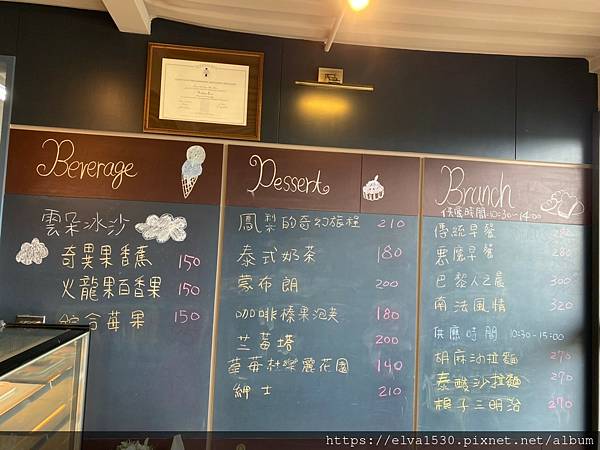 Beverage
雲朵冰沙
奇異果香蕉 150
火龍果百香果 150
綜合莓果 150
Dessert
鳳梨的奇幻旅程 210
泰式奶茶 180
蒙布朗 200
咖啡榛果泡芙 180
兰莓塔 200
草莓杜樂麗花園 140
紳士 210
Brunch
供應時間:10:30-14:00
傳統早餐
惡魔早餐 280
巴黎人之晨 300
南法風情 320
供應時間 10:30-15:00
胡麻沙拉麵 270
泰酸沙拉麵 270
棍子三明治 270
https://elva1530.pixnet.net/album